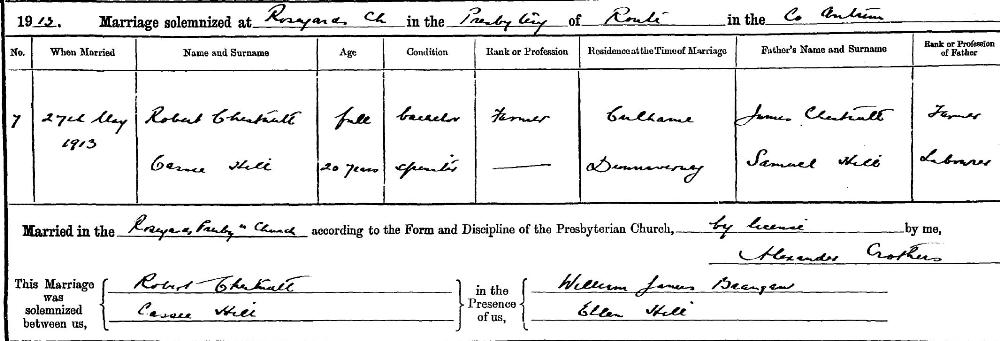 1913. Marriage solemnized at Roseyards Ch in the Presbytery of Route in the Co Antrim
No. When Married Name and Surname Age Condition Rank or Profession Residence at the Time of Marriage Father's Name and Surname Rank or Profession of Father
7 27th May 1913 Robert Chestnutt full bachelor Farmer Culhame James Chestnutt Farmer
Cassie Hill 20 years spinster Samuel Hill Labourer
Married in the Roseyards Presbyn Church according to the Form and Discipline of the Presbyterian Church, by license by me,
Alexander Crothers
This Marriage was solemnized between us, Robert Chestnutt in the Presence of us, William James
Cassie Hill Ellen Hill